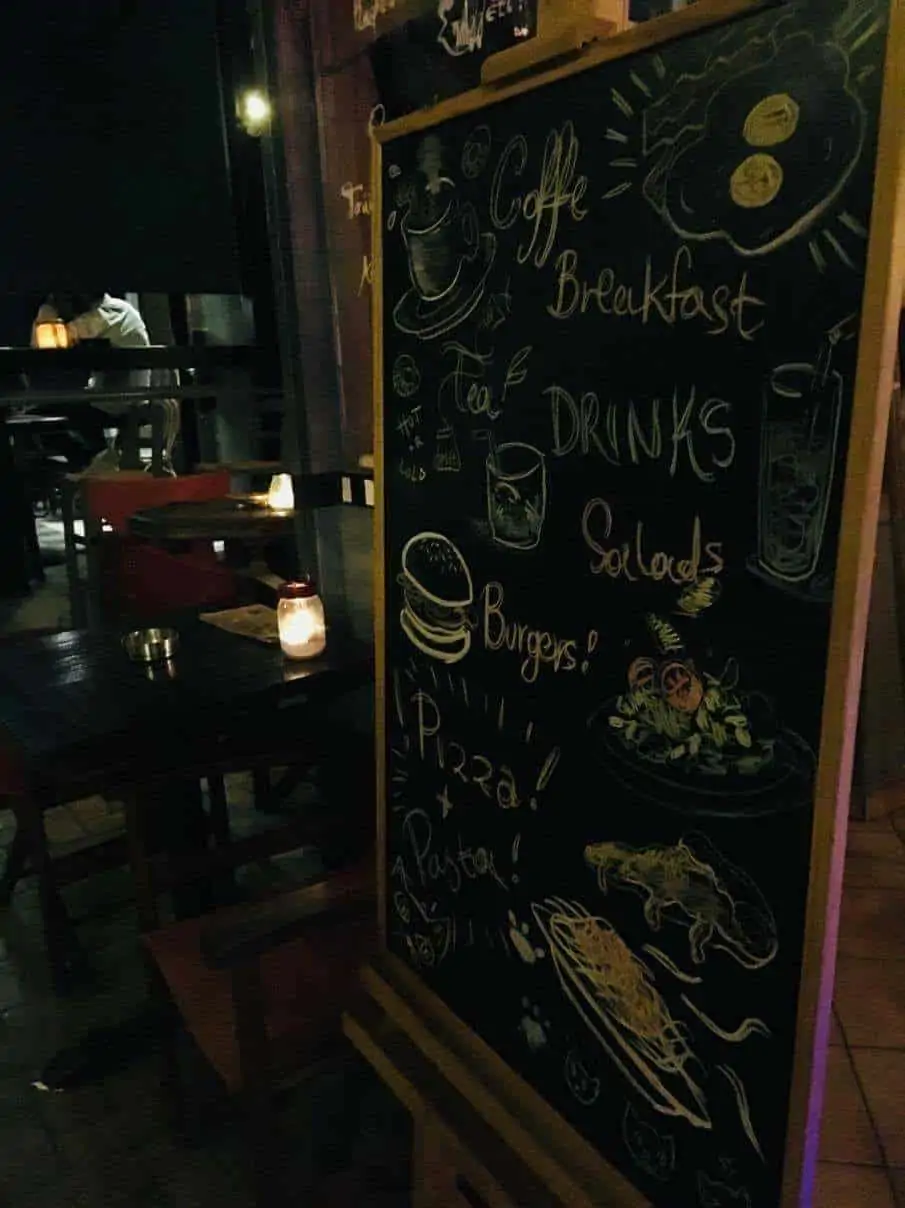 Coffe
Breakfast
Tea!
HOT
OR
COLD
DRINKS
Salads
Burgers!
Pizza!
Pasta!